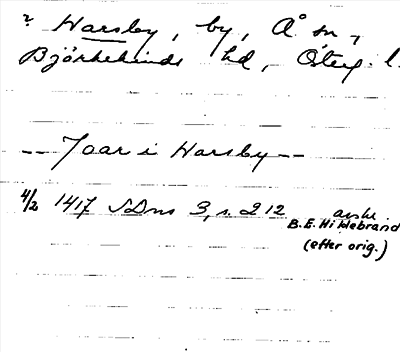 ? Harsby, by, Å sn,
Björkekinds hd, Österg. l.
-- Joar i Harsby --
4/2 1417 SDns 3, s. 212 avskr.
B.E. Hildebrand
(efter orig.)